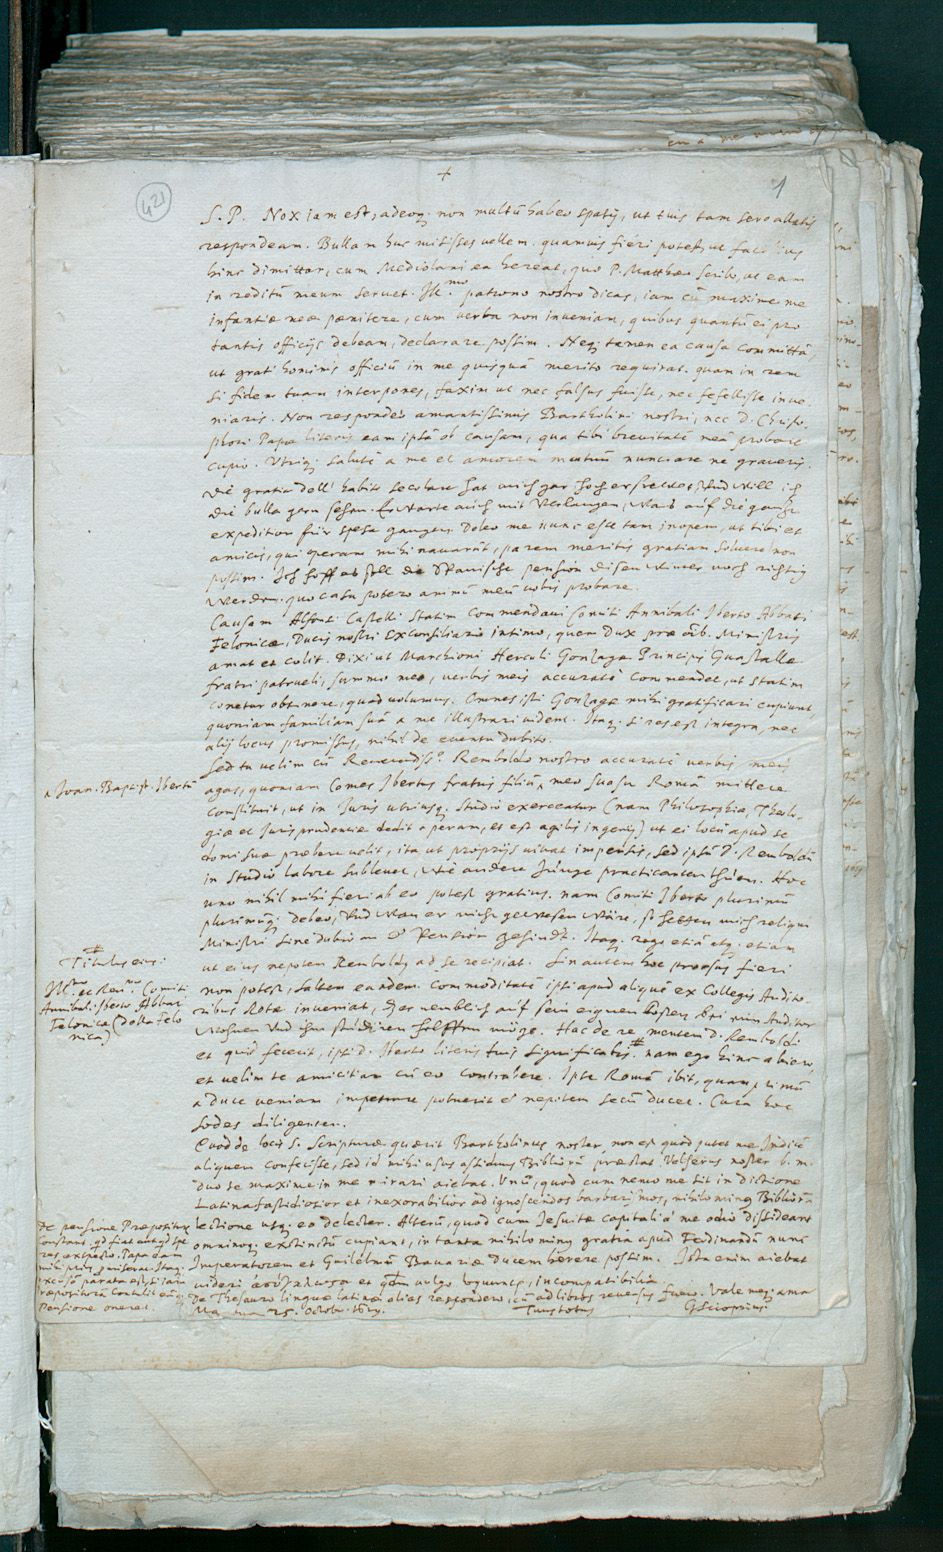 +
421
1
S. P. Nox iam est, adeoq; non multũ habeo spatij, ut tuis tam sero allatis
respondeam. Bullam huc misisses vellem. quamuis fieri potest ut facilius
hinc dimittar, cum Mediolani ea hereat, quo P. Matthæo scribo, ut eam
in reditũ meum seruet. Ill.mo patrono nostro dicas, iam cũ maxime me
infantiæ meæ pœnitere, cum verba non inveniam, quibus quantũ ei pro
tantis officijs debeam, declarare possim. Neq; tamen ea causa committã,
ut grati hominis officiũ in me quisquã merito requirat. quam in rem
si fidem tuam interpones, faxim ut nec falsus fuisse, nec fefellisse inve-
niaris. Non respondeo amantissimis Bartholini nostri, nec D. Christo-
phori Papæ literis eam ipsã ob causam, qua tibi brevitatẽ meã probare
cupio. Utriq; salutẽ a me et amorem mutuũ nunciare ne graveris.
Die gratia dell' habito secolare hat mich gar hoch erfrewet, und will ich
die bulla gern sehen. Erwarte auch mit Verlangen, was auf die gantze
expedition für spese gangen. Doleo me nunc esse tam inopem, ut tibi et
amicis, qui operam mihi navarũt, parem meritis gratiam solvere non
possim. Ich hoff es soll die Spanische pension disen Winter noch richtig
werden. quo casu potero animũ meũ vobis probare.
Causam Alfonsi Castelli statim commendavi Comiti Annibali Iberto Abbati
Felonicæ, Ducis nostri Exconsiliario intimo, quem Dux præ oĩb. Ministris
amat et colit. Dixi ut Marchioni Herculi Gonzagæ Principis Guastallæ
fratri patrueli, summo meo, verbis meis accuratè commendet, ut statim
conetur obtinere, quod volumus. Omnes isti Gonzagæ mihi gratificari cupiunt,
quoniam familiam suã a me illustrari vident. Itaq; si res est integra, nec
alij locus promissus, nihil de eventu dubito.
Sed tu velim cũ Reverendiss.o Remboldo nostro accuratè verbis meis
agas, quoniam Comes Ibertus fratris filiũ ^ meo suasu Romã mittere
^ Joan. Baptist. Ibertũ
constituit, ut in Iuris utriusq; studio exerceatur (nam Philosophiæ, Theolo-
giæ et Iurisprudentiæ dedit operam, et est agilis ingenij) ut ei locũ apud se
domi suæ præbere velit, ita ut proprijs vivat impensis, sed ipsũ D. Remboldũ
in studio labore sublevet, wie andere Junge practicanten thuen. Hoc
uno nihil mihi fieri ab eo potest gratius. nam Comiti Iberto plurimũ
plurimũq; debeo, und wan er nicht gewesen wäre, so hetten mich reliqui
Ministri sine dubio an der Pension gehindt. Itaq; rogo etiã atq; etiam
ut eius nepotem Remboldus ad se recipiat. Sin autem hoc prorsus fieri
non potest, saltem eandem commoditatẽ ipsi apud aliquẽ ex Collegis Audito-
ribus Rotæ inveniat, der nemblich auf sein eignen Kosten bei eim Auditor
wohnen und ihm studiren helffen möge. Hac de re mentem D. Remboldi
et quid fecerit, ipsi D. Iberto literis tuis significabis.# nam ego hinc abiero,
et velim te amicitiam cũ eo contrahere. Ipse Romã ibit, quamprimũ
a Duce veniam impetrare potuerit et nepotem secũ ducet. Cura hoc
sodes diligenter.
# Titulus eius:
Ill.mo et Reu.mo Comiti
Annibali Iberto Abbati
Felonicæ (della Felo-
nica)
Quod de locis S. Scripturæ quærit Bartholinus noster, non est quòd putet me Indicẽ
aliquem confecisse, sed id mihi usus assiduus Bibliorũ præstat. Velserus noster b. m.
duo se maximè in me mirari aiebat. Unũ, quod cum nemo me sit in dictione
Latina fastidiosior et inexorabilior ad ignoscendos barbarismos, nihilominus Bibliorũ
lectione usq; eo delecter. Alterũ, quòd cum Iesuitæ capitali a me odio dissideant
omninoq; exstinctũ cupiant, in tanta nihilominus gratia apud Ferdinandũ nunc
Imperatorem et Guilelmũ Bavariæ Ducem herere possim. Ista enim aiebat
videri ἀσύστατα et qđ vulgo loquuntur, incompatibilia.
De Thesauro linguæ latinæ alias respondero, cũ ad libros reversus fuero. Vale meq; ama
25. Octobr. 1619. Tuus totus GScioppius.
De pensione Præpositur
Constant.